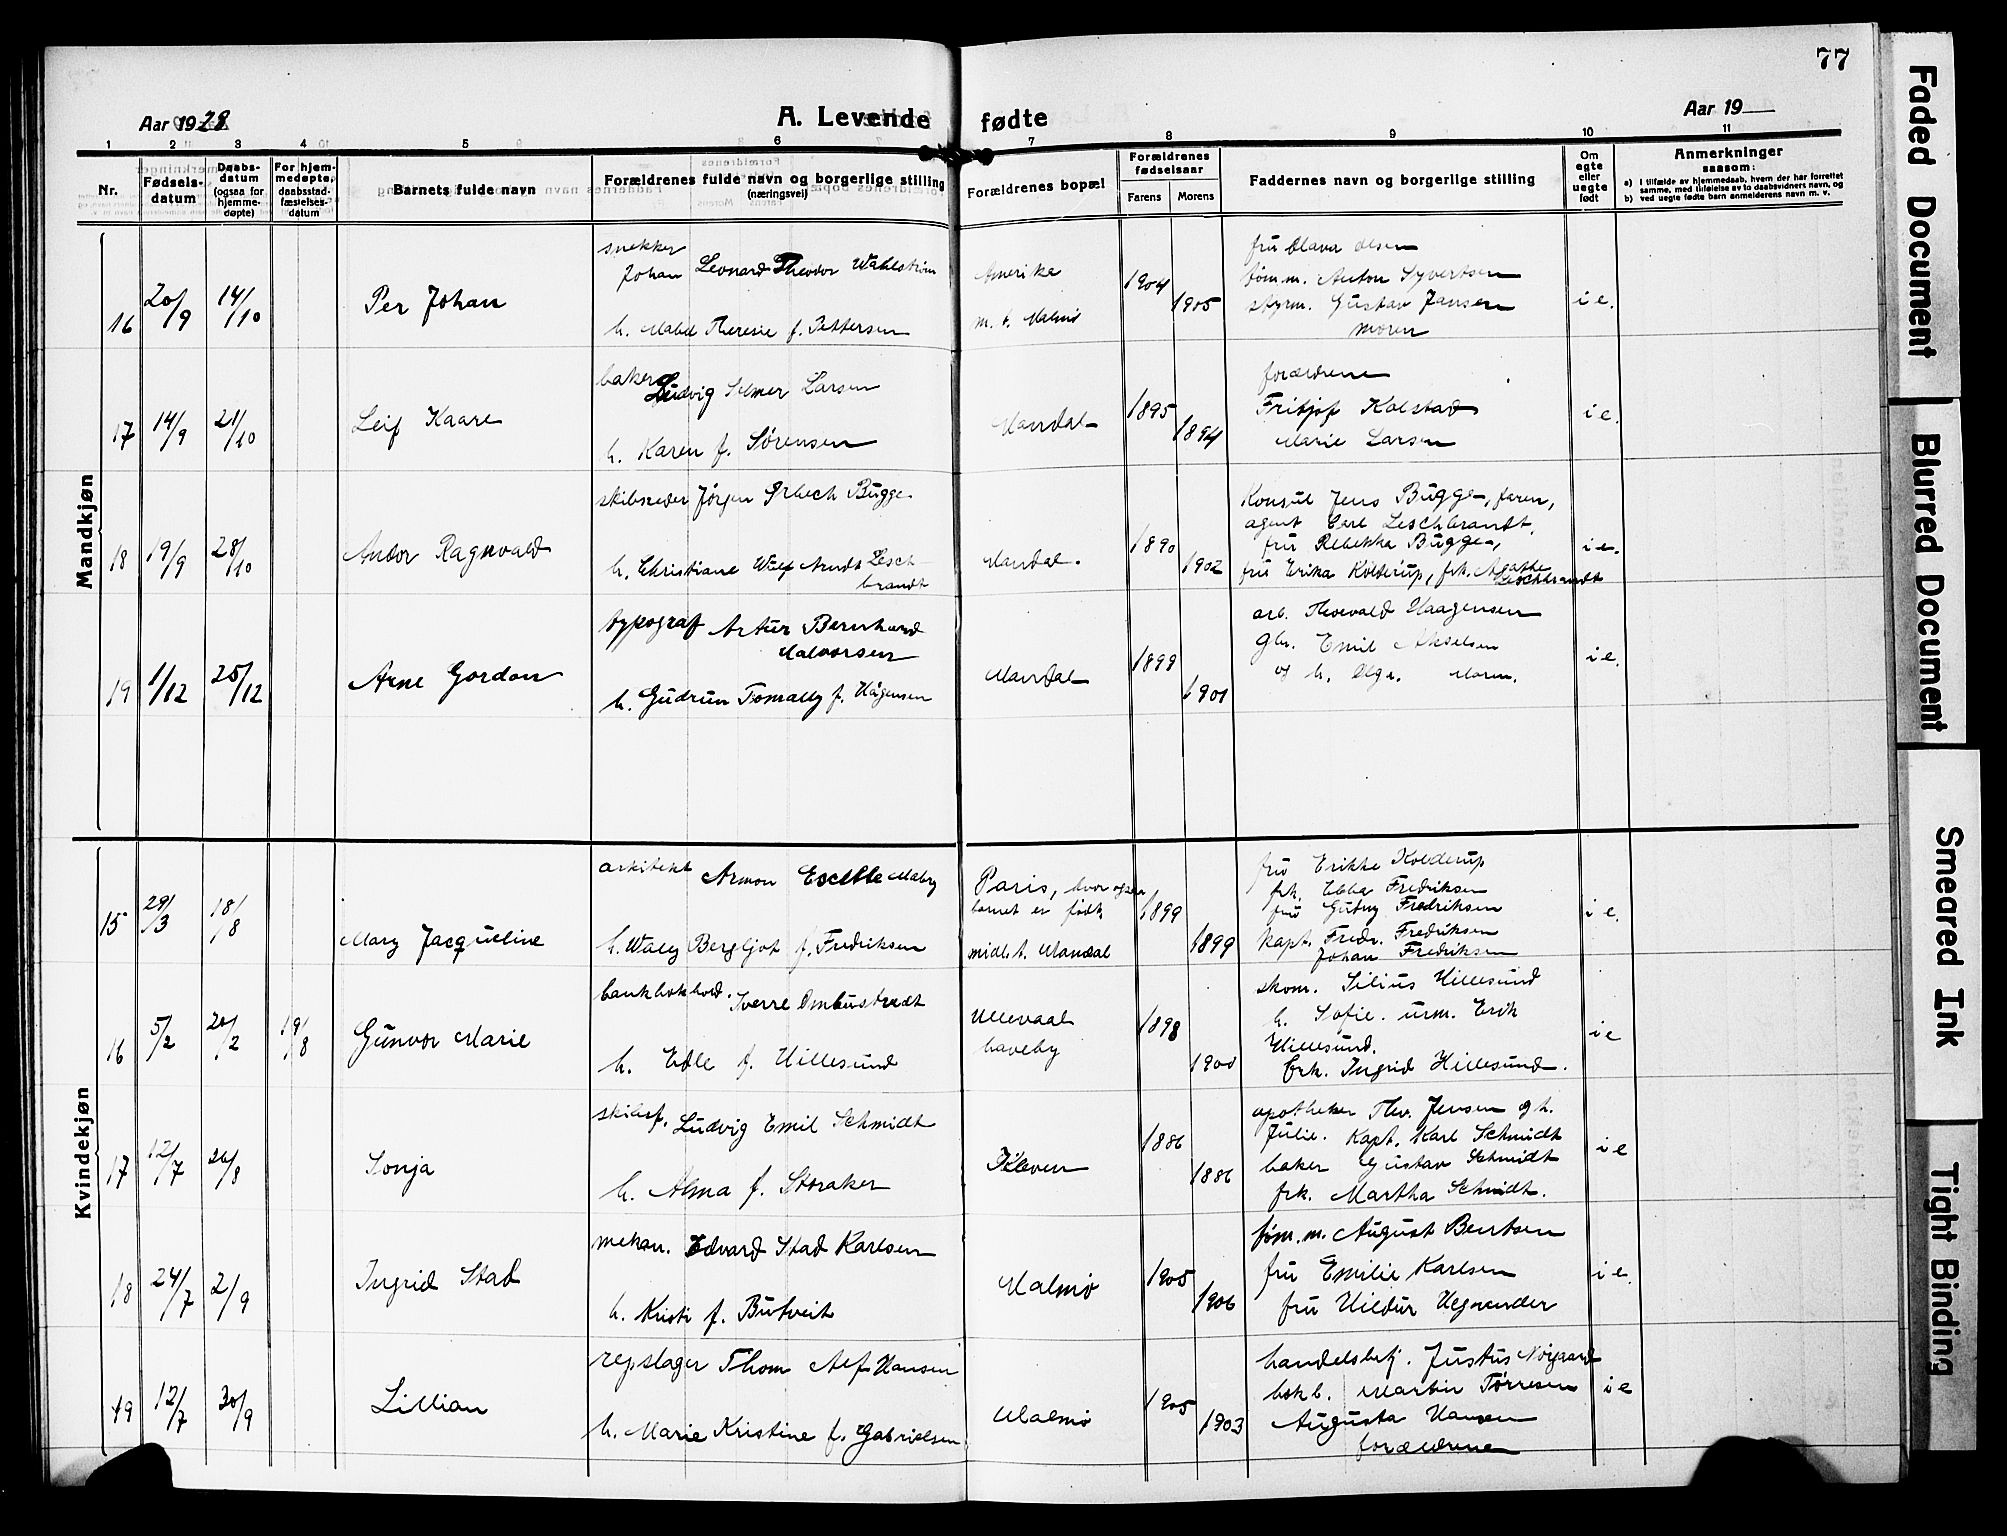 77
Aar 1928 A. Levende fødte Aar 19
1 2 3 4 5 6 7 8 9 10 11
Nr. Fødsels-datum Daabs-datum (ogsaa for hjemme-døpte) For hjem-medøpte, daabsstad-fæstelses-datum Barnets fulde navn Forældrenes fulde navn og borgerlige stilling (næringsvei) Forældrenes bopæl Forældrenes fødselsaar Farens Morens Faddernes navn og borgerlige stilling Om egte eller uegte født Anmerkninger saasom:
a) I tilfælde av hjemmedaab, hvem der har forrettet samme, med tilføielse av to daabsvidners navn, og
b) ved uegte fødte barn anmelderens navn m. v.
Mandkjøn
16 20/9 14/10 Per Johan
snekker
Johan Leonard Theodor Wahlstrøm
h. Mabel Theresie f. Pettersen
Amerika
m. t. Malmø
1904 1905
fru Olava Olsen
tøm.m. Anton Syvertsen
styrm. Gustav Jansen
moren
i e.
17 14/9 21/10 Leif Kaare
baker Ludvig Selmer Larsen
h. Karen f. Sørensen
Mandal
1895 1894
forældrene
Fritjof Kolstad
Marie Larsen
i e.
18 19/9 28/10 Andor Ragnvald
skibsreder Jørgen Bugge
h. Christiane Wulf Arndt Leschbrandt
Mandal.
1890 1902
Konsul Jens Bugge, faren,
agent Carl Leschbrandt,
fru Rebekka Bugge,
fru Erika Kolderup, frk. Agathe Leschbrandt
i e.
19 1/12 25/12 Arne Gordon
typograf Artur Bernhard
Halvorsen
h. Gudrun f. Hågensen
Mandal
1899 1901
arb. Thorvald Haagensen
gbr. Emil Akselsen
og h. Olga. Moren.
i e.
Kvindekjøn
15 29/3 18/8 Mary Jacqueline
arkitekt
h. Bergljot f. Fredriksen
Paris, hvor ogsaa
barnet er født,
midl. t. Mandal
1899 1899
fru Erikke Kolderup
frk. Ebba Fredriksen
fru Fredriksen
Kapt. Fredr. Fredriksen
Johan Fredriksen
i e.
16 5/2 20/2 19/8 Gunvor Marie
bankbokhold. Sverre Ombustvedt
h. Edle f. Hillesund
Ullevaal
haveby
1898 1900
skom. Silius Hillesund
h. Sofie. urm. Erik
Hillesund.
frk. Ingrid Hillesund.
i e
17 12/7 26/8 Sonja
skibsf. Ludvig Emil Schmidt
h. Alma f. Storaker
Kleven
1886 1886
apotheker Thv. Jensen og h.
Julie. Kapt. Karl Schmidt
baker Gustav Schmidt
frk. Martha Schmidt.
i e
18 24/7 2/9 Ingrid Stad
mekan. Edvard Stad Karlsen
h. Kristi f. Butveit
Malmø
1905 1906
tøm.m. August Bentsen
fru Emilie Karlsen
fru Hildur
i e.
19 12/7 30/9 Lillian
repslager Thom Alf Hansen
h. Marie Kristine f. Gabrielsen
Malmø
1905 1903
handelsbetj. Justus Nørgaard
bokb. Martin Tørresen
Augusta Hansen
forældrene
i e
Faded Document
Blurred Document
Smeared Ink
Tight Binding